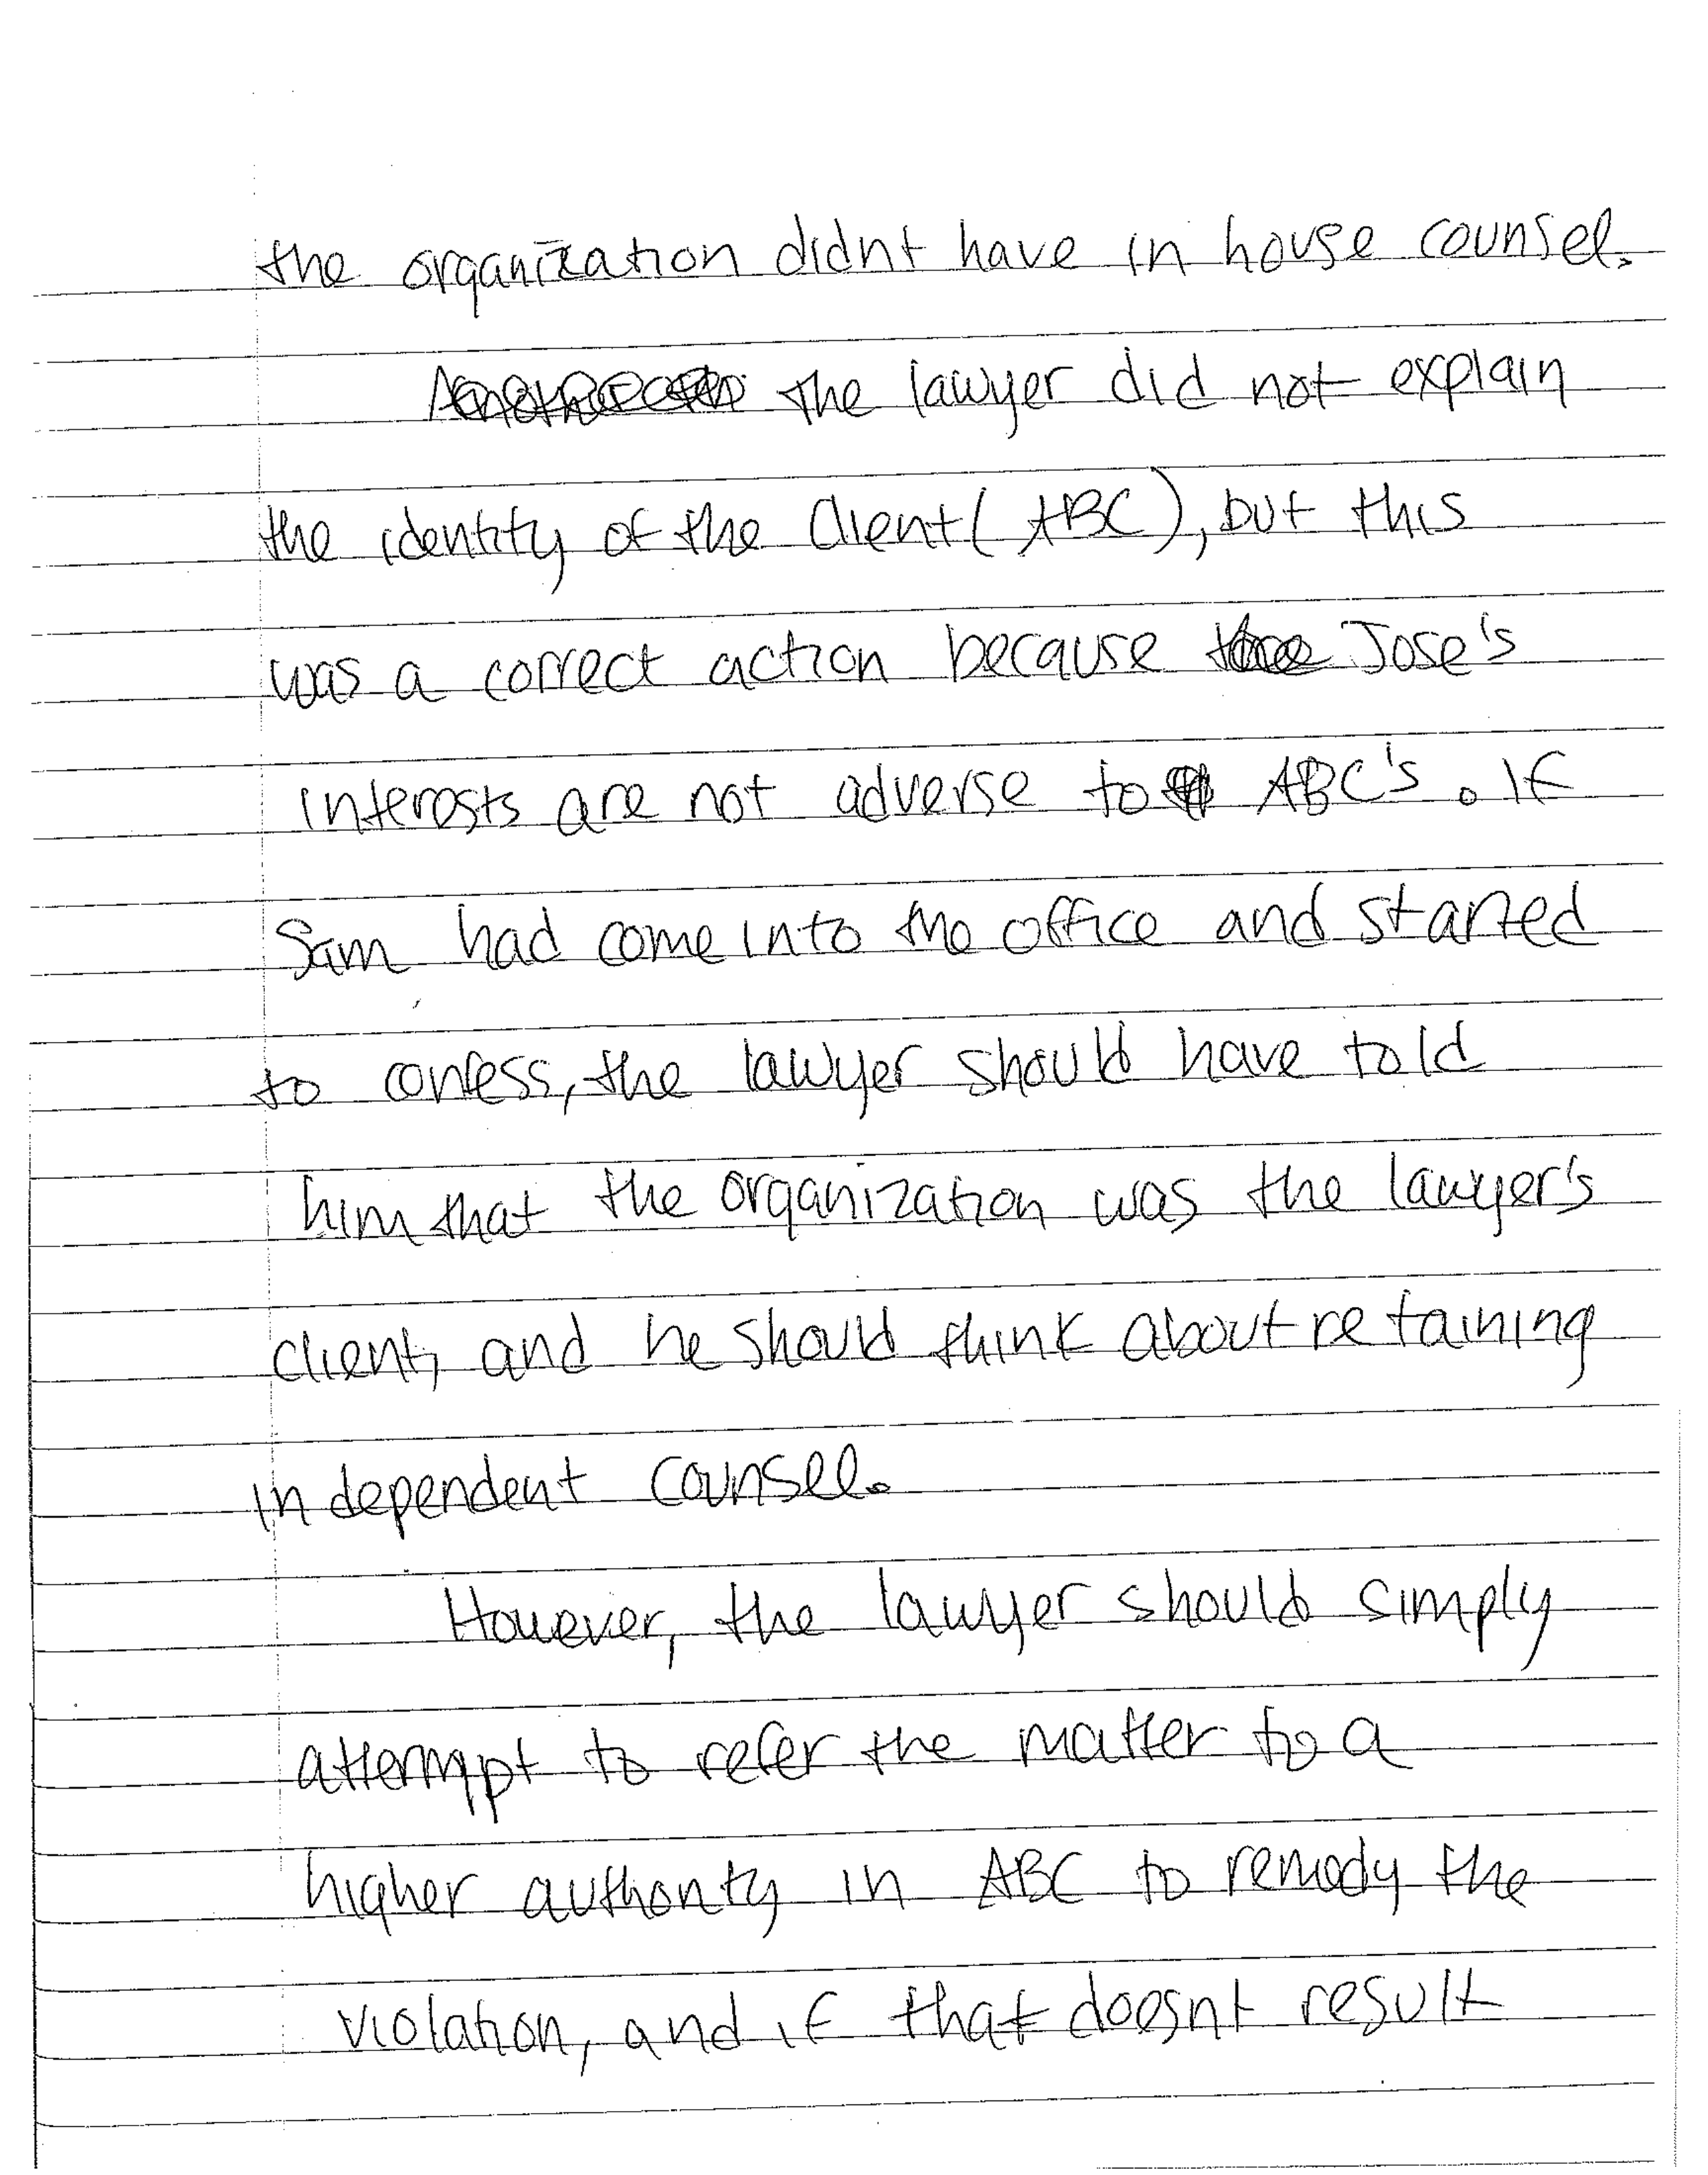 the organization didnt have in house counsel.
the lawyer did not explain
the identity of the Client (ABC), but this
was a correct action because Jose's
interests are not adverse to ABC's. If
Sam had come into the office and started
to confess, the lawyer should have told
him that the organization was the lawyer's
client, and he should think about retaining
independent counsel.
However, the lawyer should simply
attempt to refer the matter to a
higher authority in ABC to remedy the
violation, and if that doesnt result